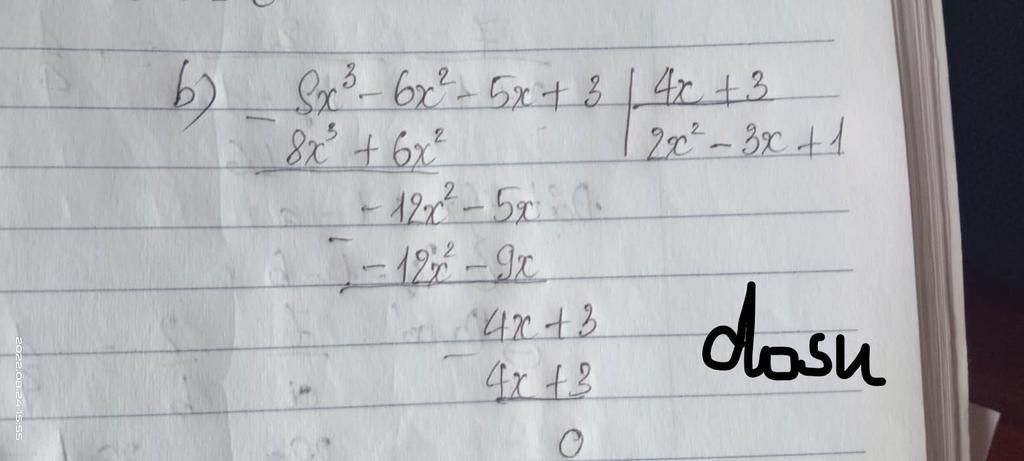 b) - 8x³ - 6x² - 5x + 3 | 4x + 3
8x³ + 6x² | 2x² - 3x + 1
- 12x² - 5x
- - 12x² - 9x
4x + 3
- 4x + 3
0
dosu
2022.08.24 15:55